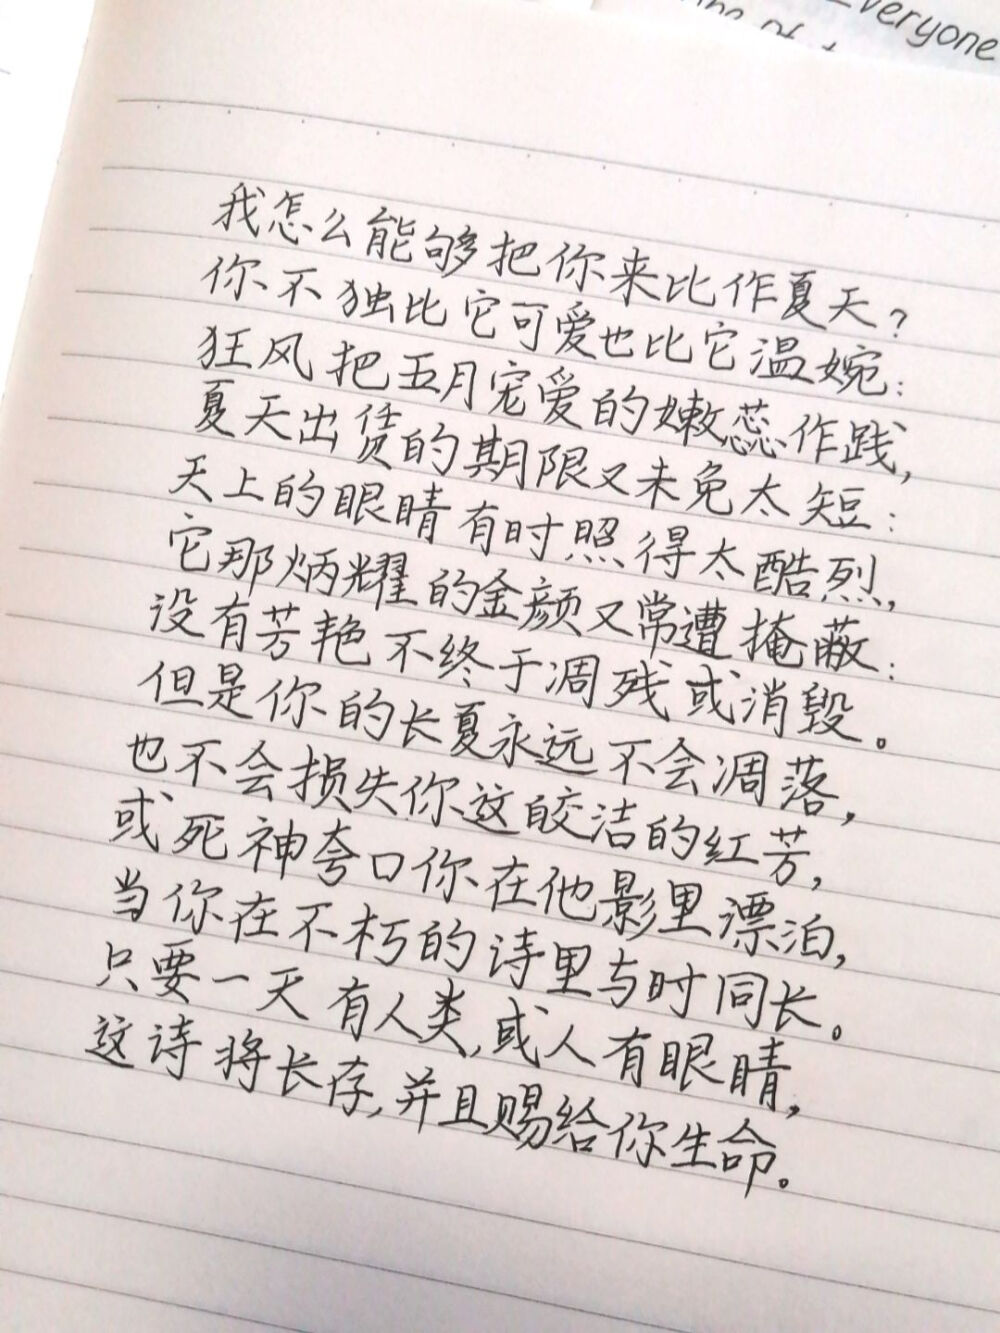 Everyone
我怎么能够把你来比作夏天?
你不独比它可爱也比它温婉:
狂风把五月宠爱的嫩蕊作践,
夏天出赁的期限又未免太短:
天上的眼睛有时照得太酷烈,
它那炳耀的金颜又常遭掩蔽:
没有芳艳不终于凋残或消毁。
但是你的长夏永远不会凋落,
也不会损失你这皎洁的红芳,
或死神夸口你在他影里漂泊,
当你在不朽的诗里与时同长。
只要一天有人类,或人有眼睛,
这诗将长存,并且赐给你生命。